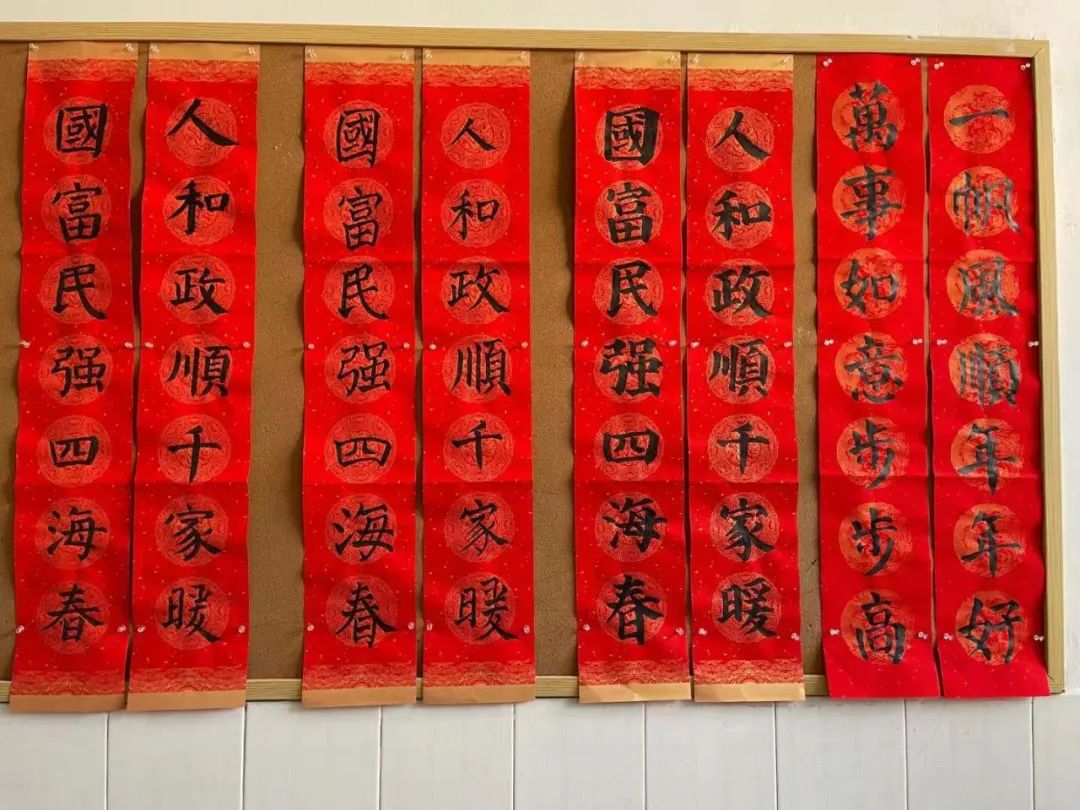 一帆風順年年好
萬事如意步步高
人和政順千家暖
國富民强四海春
人和政順千家暖
國富民强四海春
人和政順千家暖
國富民强四海春